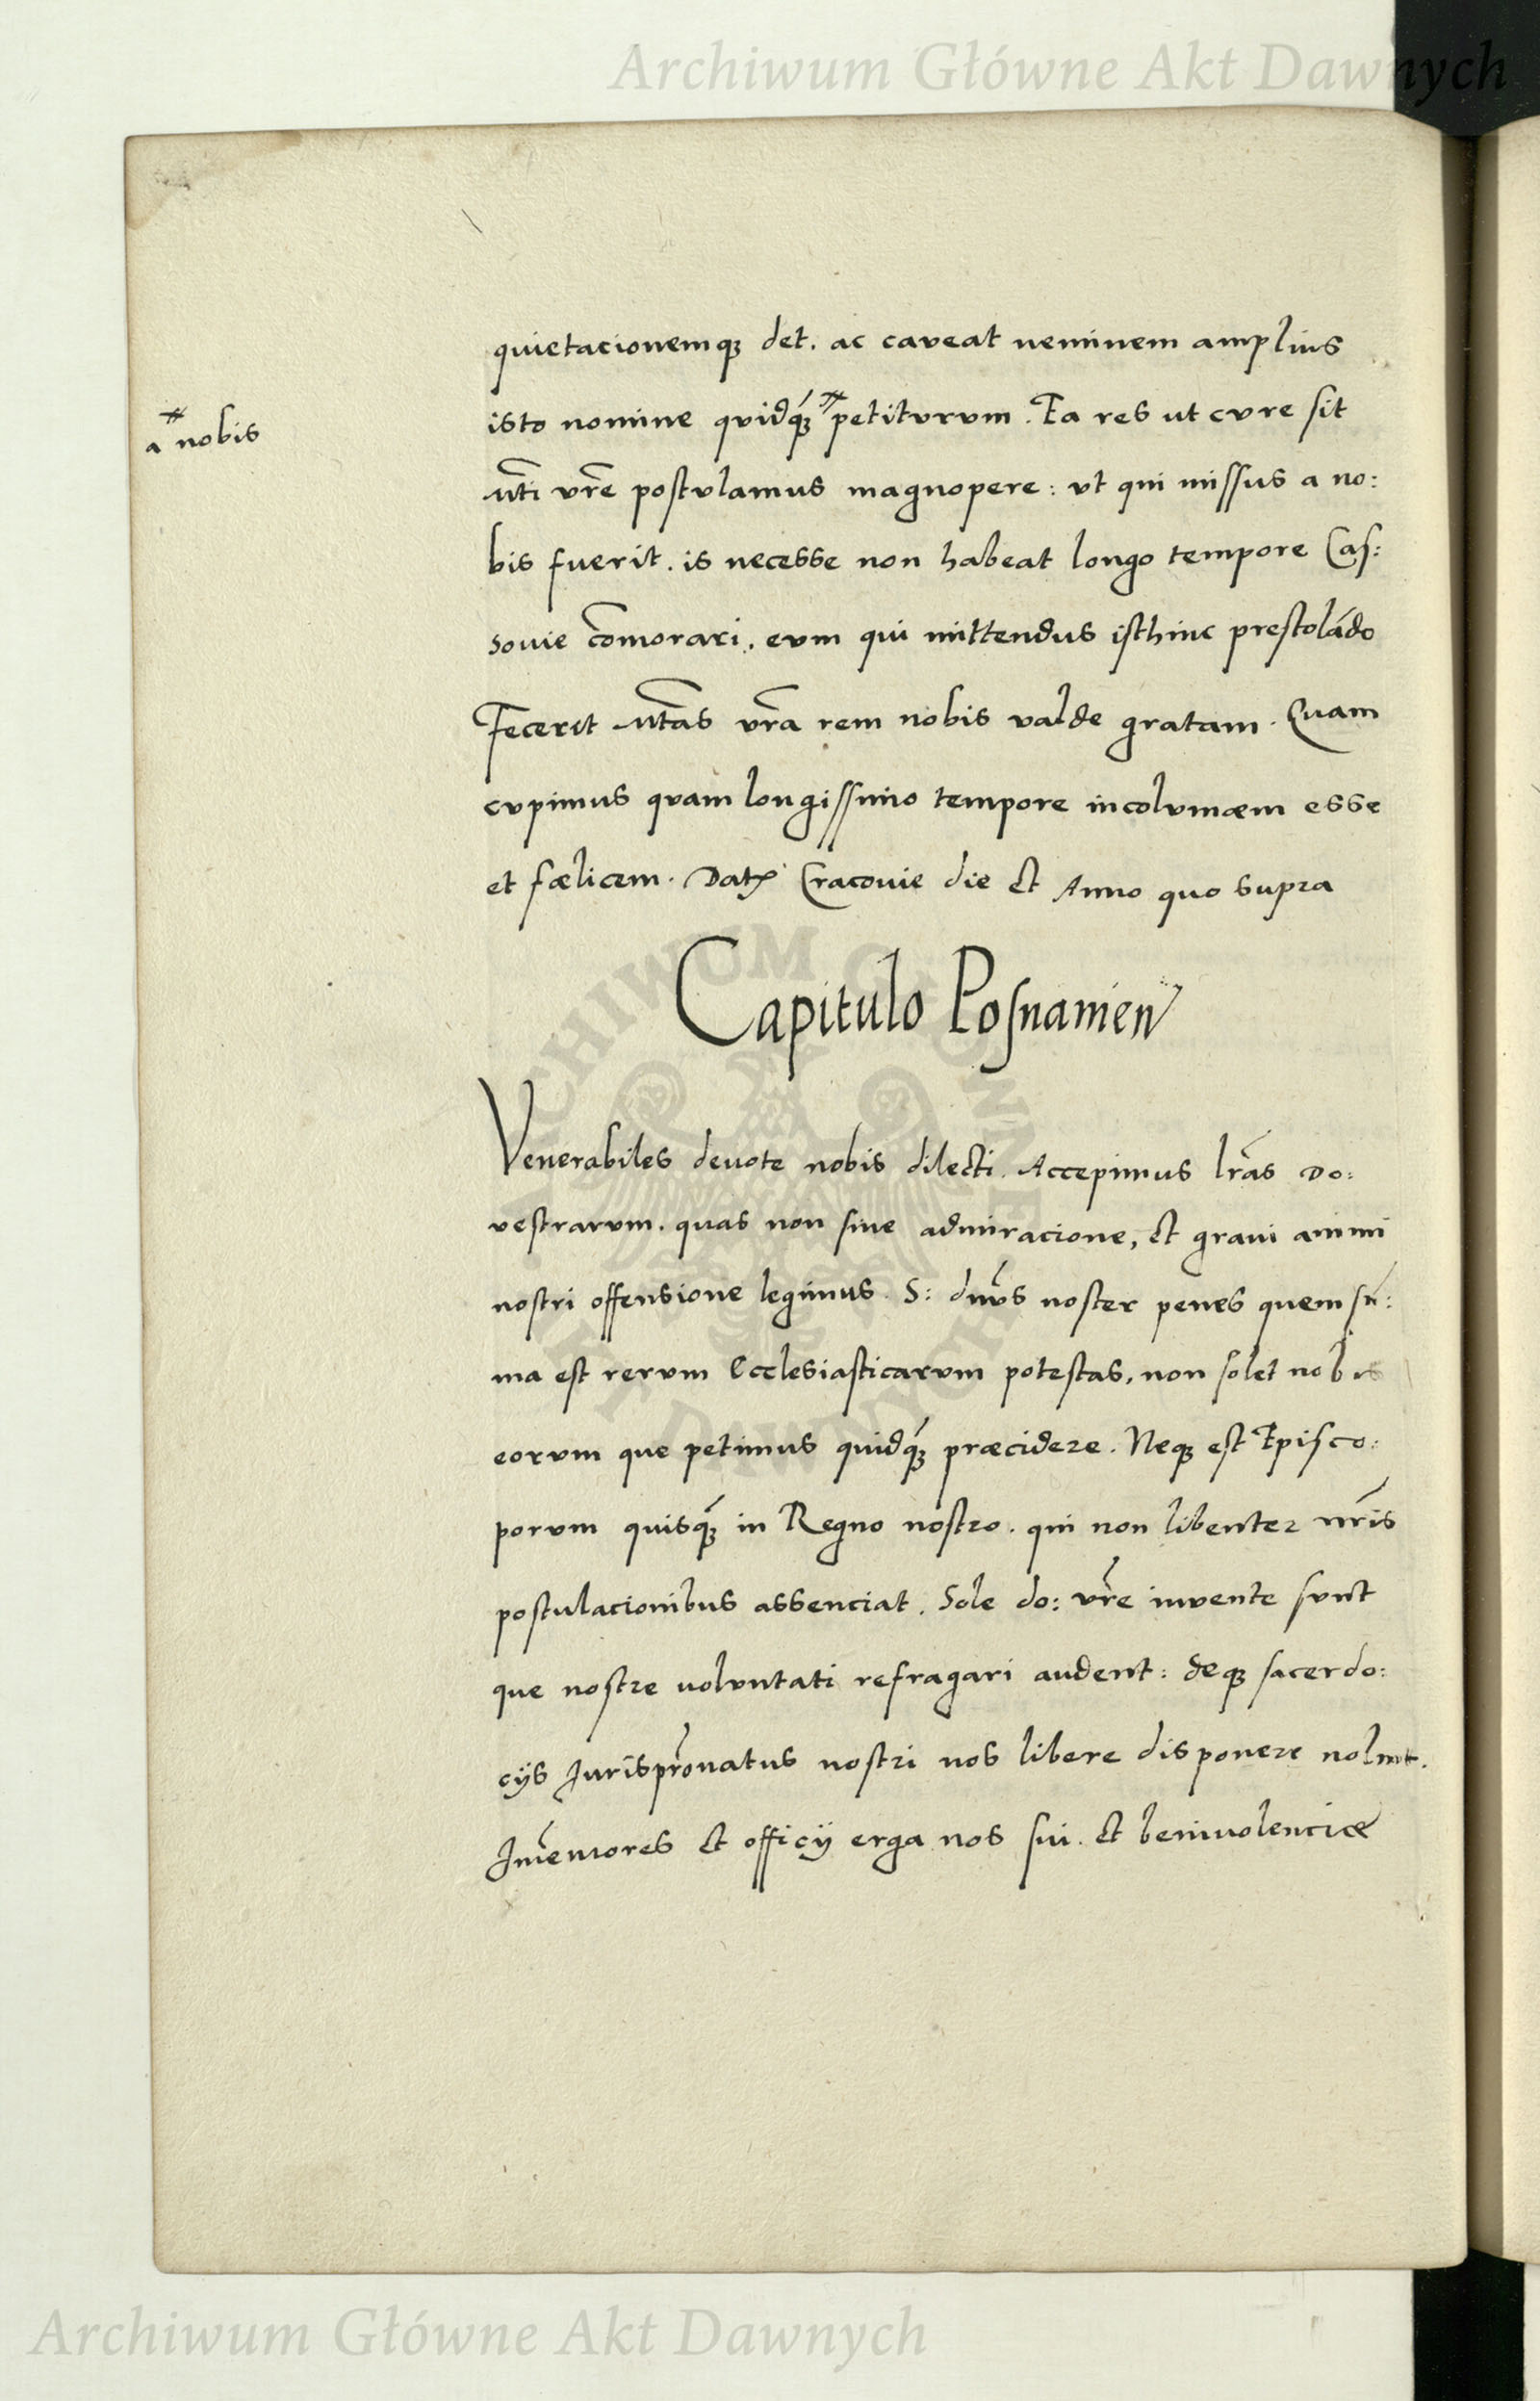 Archiwum Główne Akt Dawnych
quietacionemq₃ det. ac caveat neminem amplius
isto nomine quidq́₃ # petiturum. Ea res ut cure sit
# a nobis
Mti vr̃e postulamus magnopere: ut qui missus a no:
bis fuerit. is necesse non habeat longo tempore Cas:
souie com̃orari. eum qui mittendus isthinc prestolãdo
Fecerit Mtas vr̃a rem nobis valde gratam. Quam
cupimus quam longissimo tempore incolumæm esse
et fælicem. Datꝭ Cracouie die et Anno quo supra
Capitulo Posnanien
Venerabiles deuote nobis dilecti. Accepimus lr̃as Do:
vestrarum. quas non sine admiracione, et graui animi
nostri offensione legimus. S: dñvs noster penes quem sũ:
ma est rerum Ecclesiasticarum potestas, non solet nobis
eorum que petimus quidq́₃ præcidere. Neq₃ est Episco:
porum quisq́₃ in Regno nostro. qui non libenter nr̃is
postulacionibus assenciat. Sole do: vr̃e invente sunt
que nostre voluntati refragari audent: deq₃ sacerdo:
cijs Jurispr̃onatus nostri nos libere disponere nolunt.
Jm̃emores et officij erga nos sui. et beniuolenciæ
ARCHIWUM GŁÓWNE AKT DAWNYCH
Archiwum Główne Akt Dawnych